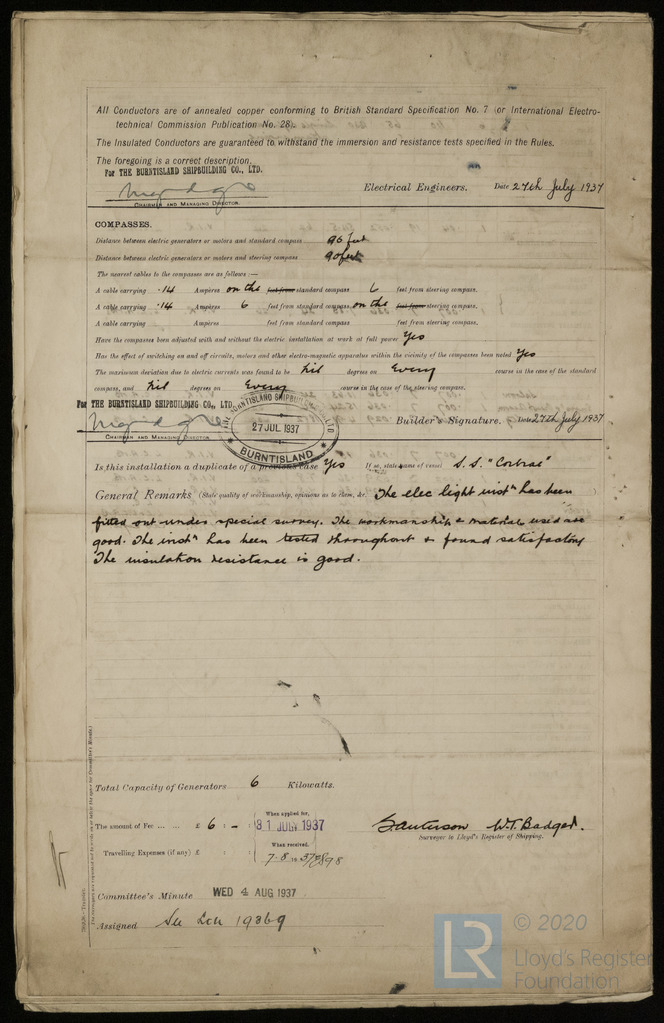 All Conductors are of annealed copper conforming to British Standard Specification No. 7 (or International Electro-
technical Commission Publication No. 28).
The Insulated Conductors are guaranteed to withstand the immersion and resistance tests specified in the Rules.
The foregoing is a correct description.
For THE BURNTISLAND SHIPBUILDING CO., LTD.
Electrical Engineers. Date 27th July 1937
CHAIRMAN AND MANAGING DIRECTOR.
COMPASSES.
Distance between electric generators or motors and standard compass 90 feet
Distance between electric generators or motors and steering compass 90 feet
The nearest cables to the compasses are as follows :—
A cable carrying ·14 Ampères on the feet from standard compass 6 feet from steering compass.
A cable carrying ·14 Ampères 6 feet from standard compass on the feet from steering compass.
A cable carrying Ampères feet from standard compass feet from steering compass.
Have the compasses been adjusted with and without the electric installation at work at full power Yes
Has the effect of switching on and off circuits, motors and other electro-magnetic apparatus within the vicinity of the compasses been noted Yes
The maximum deviation due to electric currents was found to be Nil degrees on Every course in the case of the standard
compass, and Nil degrees on Every course in the case of the steering compass.
For THE BURNTISLAND SHIPBUILDING CO., LTD.
Builder's Signature. Date 27th July 1937
CHAIRMAN AND MANAGING DIRECTOR.
27 JUL 1937
BURNTISLAND
Is this installation a duplicate of a previous case Yes If so, state name of vessel S.S. "Corbrae"
General Remarks (State quality of workmanship, opinions as to class, &c. The elec light instn has been
fitted out under special survey. The workmanship & material used are
good. The instn has been tested throughout & found satisfactory
The insulation resistance is good.
Total Capacity of Generators 6 Kilowatts.
The amount of Fee ... ... £ 6 : - :
When applied for,
31 JULY 1937
Travelling Expenses (if any) £
When received,
7.8.19 37
W.T. Badger.
Surveyor to Lloyd's Register of Shipping.
Committee's Minute WED 4 AUG 1937
Assigned See
© 2020
LR
Lloyd's Register
Foundation